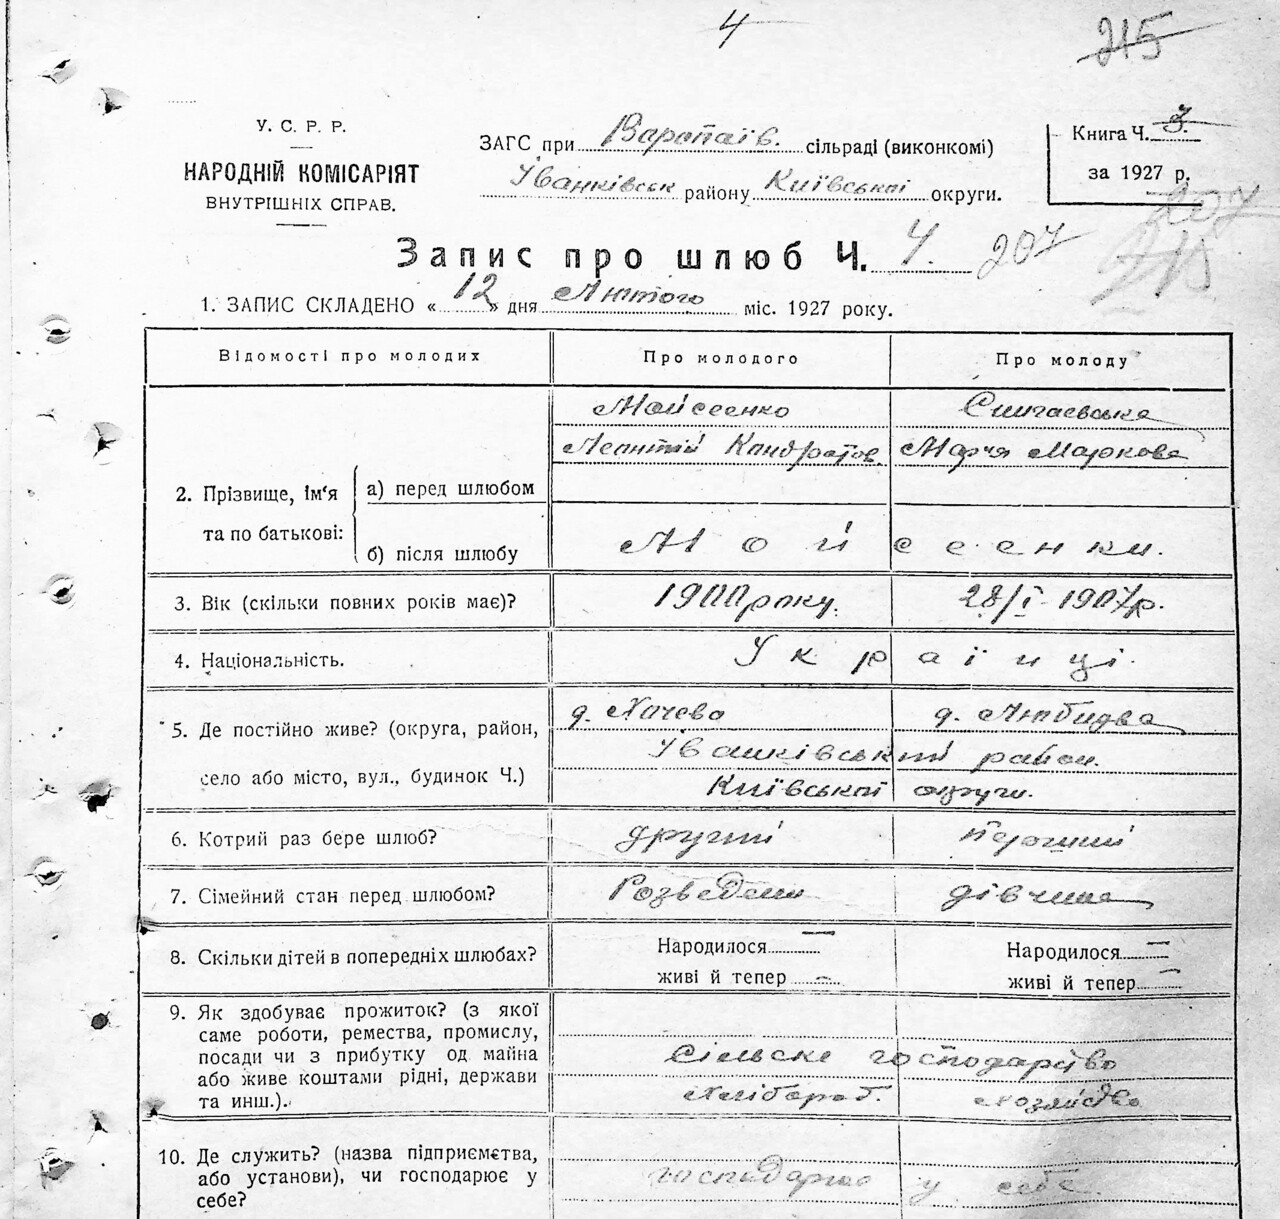 4
215
У. С. Р. Р.
НАРОДНІЙ КОМІСАРІЯТ
ВНУТРІШНІХ СПРАВ.
ЗАГС при Варопаїв. сільраді (виконкомі)
Іванківськ району Київської округи.
Книга Ч. 3.
за 1927 р.
207
215
Запис про шлюб Ч. 4. 207
1. ЗАПИС СКЛАДЕНО « 12 » дня Лютого міс. 1927 року.
Відомості про молодих Про молодого Про молоду
Мойсеенко
Леонтій Кандратов. Марія Маркова
2. Прізвище, ім'я та по батькові:
а) перед шлюбом
б) після шлюбу Мойсеенки.
3. Вік (скільки повних років має)? 1900 року. 28/I-1907р.
4. Національність. Українці.
5. Де постійно живе? (округа, район, село або місто, вул., будинок Ч.)
д. д.
Іванківський район.
Київської округи.
6. Котрий раз бере шлюб? другий перший
7. Сімейний стан перед шлюбом? Розведени дівчина
8. Скільки дітей в попередніх шлюбах? Народилося — Народилося —
живі й тепер — живі й тепер —
9. Як здобуває прожиток? (з якої
саме роботи, ремества, промислу,
посади чи з прибутку од майна
або живе коштами рідні, держави
та инш.).
сільске господарство
Хлібороб. хозяйство
10. Де служить? (назва підприємства,
або установи), чи господарює у
себе?
господарює у себе